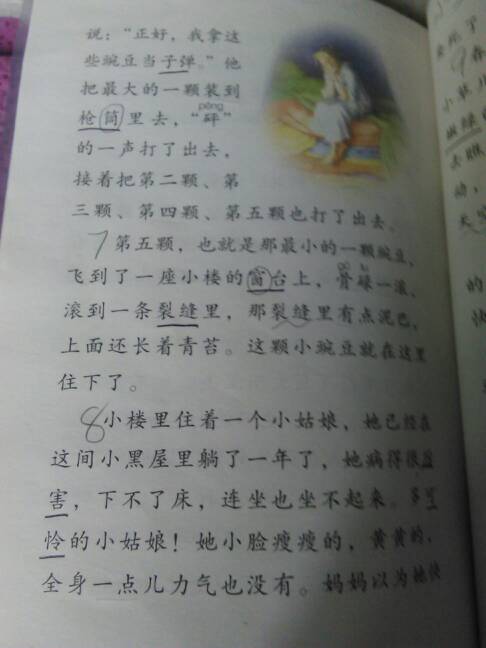 说：“正好，我拿这
些豌豆当子弹。”他
把最大的一颗装到
pēng
枪筒里去，“砰”
的一声打了出去，
接着把第二颗、第
三颗、第四颗、第五颗也打了出去。
7第五颗，也就是那最小的一颗豌豆，
飞到了一座小楼的窗台上，骨碌一滚，
滚到一条裂缝里，那裂缝里有点泥巴，
上面还长着青苔。这颗小豌豆就在这里
住下了。
8小楼里住着一个小姑娘，她已经在
这间小黑屋里躺了一年了，她病得很厉
害，下不了床，连坐也坐不起来。多可
怜的小姑娘！她小脸瘦瘦的，黄黄的，
全身一点儿力气也没有。妈妈以为她快
9
小草
去瞧
动，
天
的
快